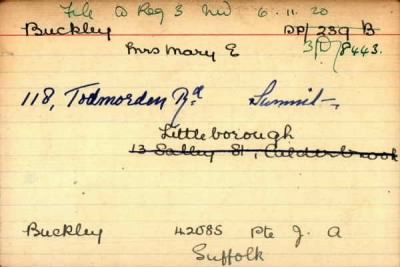 File @ Reg 3 NW 6.11.20
Buckley DP/239 B
Mrs Mary E 3/D/8443.
118, Todmorden Rd Summit
Littleborough
13 Salley St, Calderbrook
Buckley 42085 Pte J. A
Suffolk